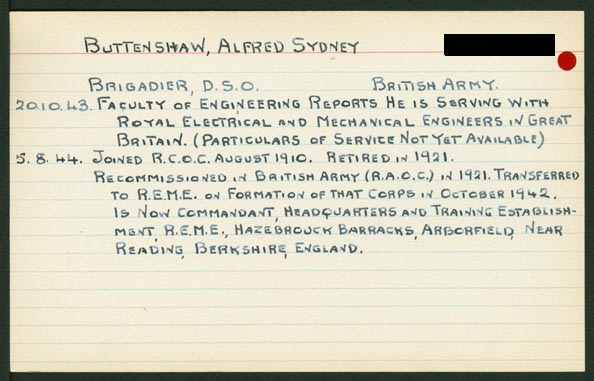 BUTTENSHAW, ALFRED SYDNEY
BRIGADIER, D.S.O. BRITISH ARMY.
20.10.43. FACULTY OF ENGINEERING REPORTS HE IS SERVING WITH
ROYAL ELECTRICAL AND MECHANICAL ENGINEERS IN GREAT
BRITAIN. (PARTICULARS OF SERVICE NOT YET AVAILABLE)
5.8.44. JOINED R.C.O.C. AUGUST 1910. RETIRED IN 1921.
RECOMMISSIONED IN BRITISH ARMY (R.A.O.C.) IN 1921. TRANSFERRED
TO R.E.M.E. ON FORMATION OF THAT CORPS IN OCTOBER 1942.
IS NOW COMMANDANT, HEADQUARTERS AND TRAINING ESTABLISH-
MENT, R.E.M.E., HAZEBROUCK BARRACKS, ARBORFIELD, NEAR
READING, BERKSHIRE, ENGLAND.